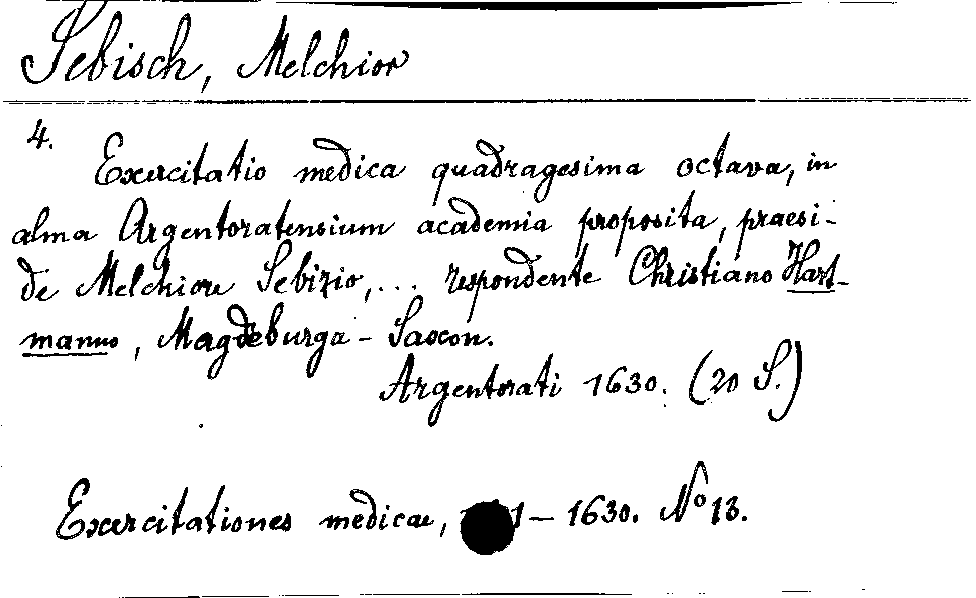 Sebisch, Melchior
4.
Exercitatio medica quadragesima octava, in
alma Argentoratensium academia proposita, praesi-
de Melchiore Sebizio, ... respondente Christiano Hart-
manno, Magdeburga-Saxon.
Argentorati 1630. (20 S.)
Exercitationes medicae, 1 1 – 1630. No 13.